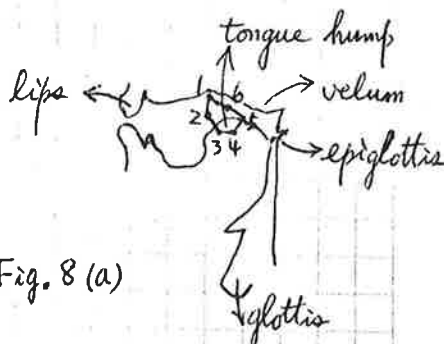 tongue hump
lips
velum
1
6
2
5
3 4
epiglottis
Fig. 8 (a)
glottis